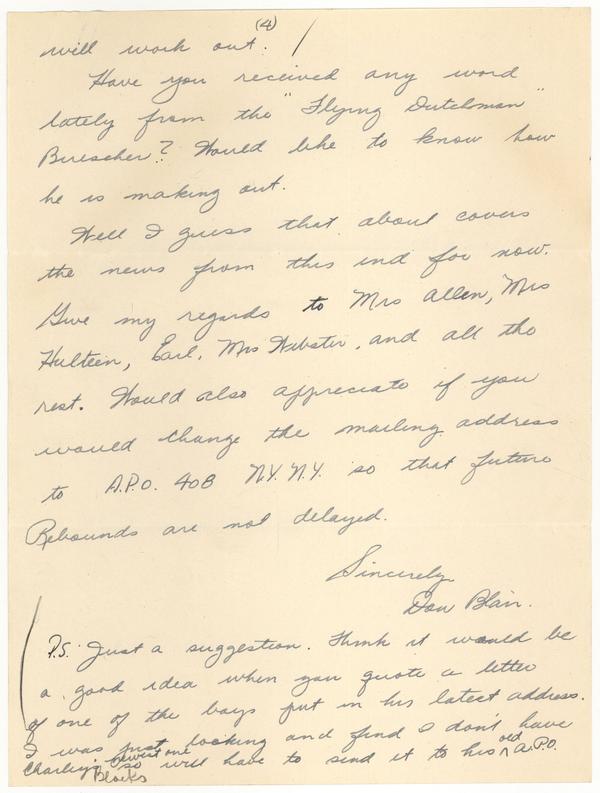 (4)
will work out.
Have you received any word
lately from the "Flying Dutchman"
Buescher? Would like to know how
he is making out.
Well I guess that about covers
the news from this end for now.
Give my regards to Mrs Allen, Mrs
Hulteen, Earl, Mrs Webster, and all the
rest. Would also appreciate if you
would change the mailing address
to A.P.O. 408 N.Y. N.Y. so that future
Rebounds are not delayed.
Sincerely
Don Blair.
P.S. Just a suggestion. Think it would be
a good idea when you quote a letter
of one of the boys put in his latest address.
I was just looking and find I don't have
Charley Block's newest one so will have to send it to his old A.P.O.